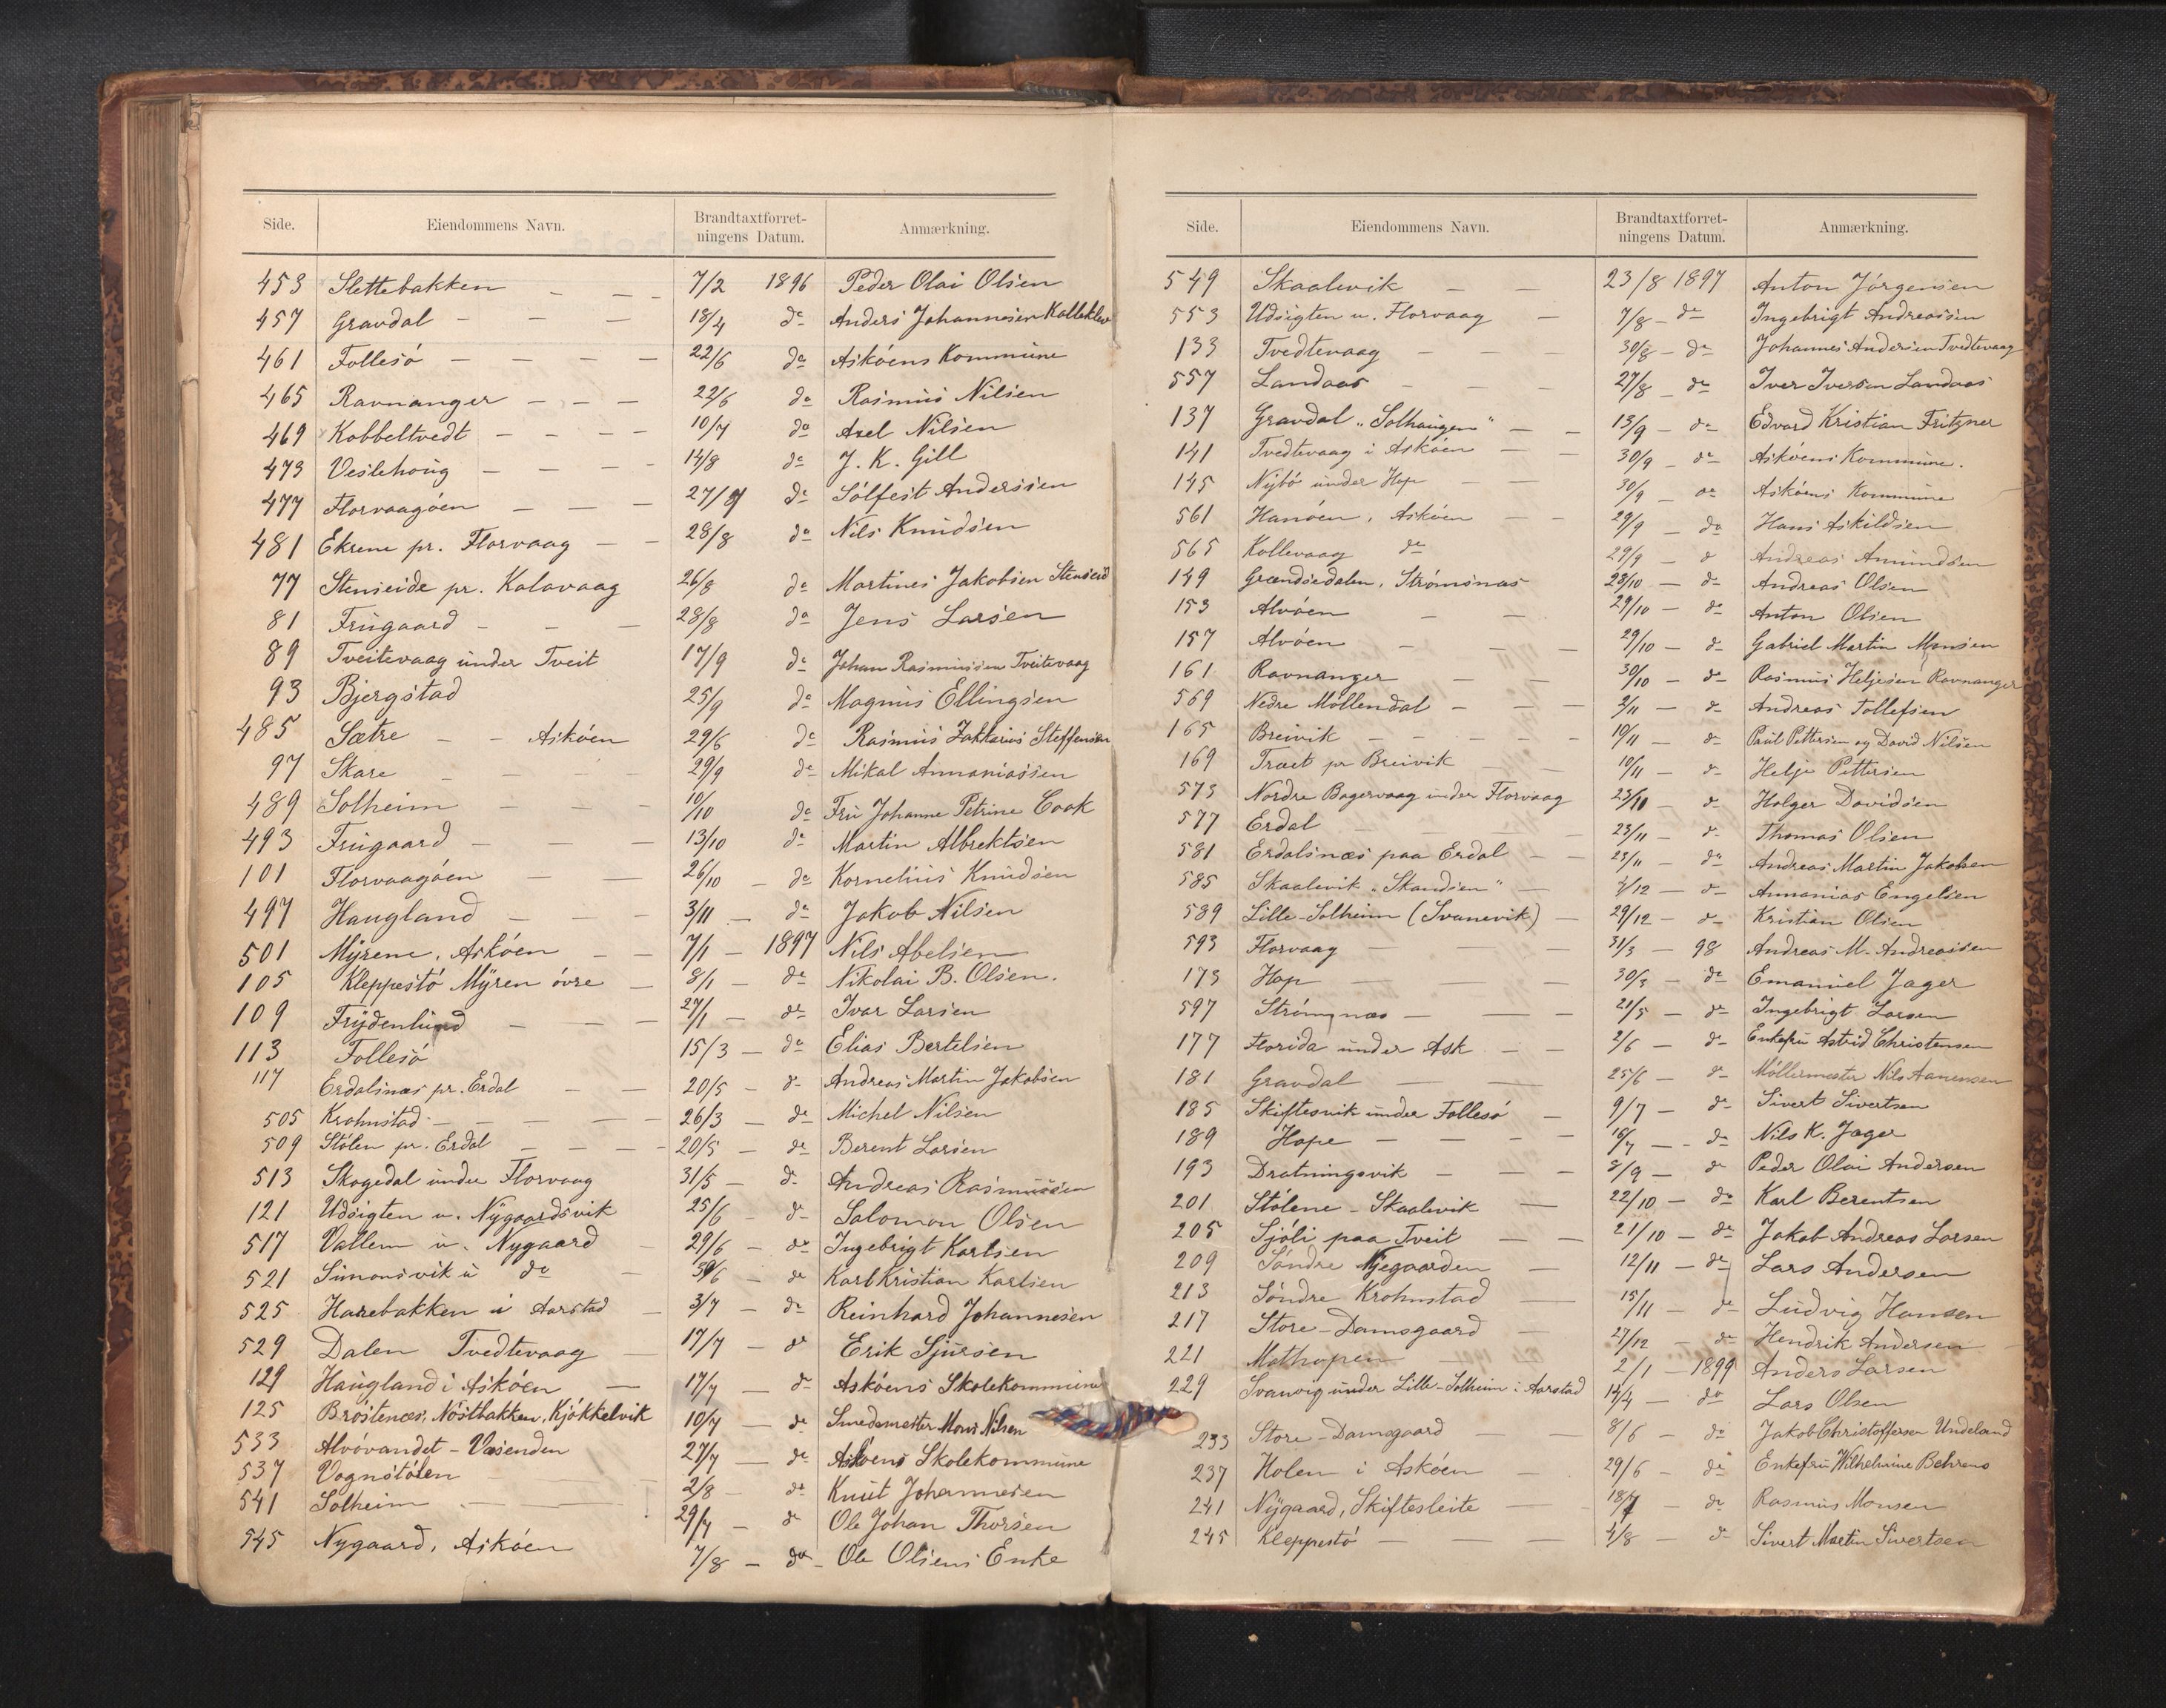 Side. Eiendommens Navn. Brandtaxtforret-ningens Datum. Anmærkning.
453 Slettebakken - - - 7/2 1896 Peder Olai Olsen
457 Gravdal - - - 18/4 do Anders Johannesen Kolleklev
461 Follesö - - - - 22/6 do Asköens Kommune
465 Ravnanger - - - 22/6 do Rasmus Nilsen
469 Kobbeltvedt - - - - 10/7 do Axel Nilsen
473 Veslehoug - - - - 14/8 do J. K. Gill
477 Florvaagöen - - - 27/8 do Sölfest Anderssen
481 Ekrene pr. Florvaag - - 28/8 do Nils Knudsen
77 Stenseide pr. Kalavaag 26/8 do Martines Jakobsen Stenseid
81 Frugaard - - - 28/8 do Jens Larsen
89 Tveitevaag under Tveit 17/9 do Johan Rasmussen Tveitevaag
93 Bjergstad 25/9 do Magnus Ellingsen
485 Sætre - - Asköen 29/6 do Rasmus Zakkarias Steffensen
97 Skare - - - - 29/9 do Mikal Annaniassen
489 Solheim - - - 10/10 do Fru Johanne Petrine Cook
493 Frugaard - - - 13/10 do Martin Albrektsen
101 Florvaagöen - - 26/10 - do Kornelius Knudsen
497 Haugland - - - 3/11 - do Jakob Nilsen
501 Myrene, Asköen - - 7/1 - 1897 Nils Abelsen
105 Kleppestö Myren övre - 8/1 - do Nikolai B. Olsen.
109 Frydenlund - - - 27/1 - do Ivar Larsen
113 Follesö 15/3 - do Elias Bertelsen
117 Erdalsnæs pr. Erdal - - 20/5 - do Andreas Martin Jakobsen
505 Krohnstad - - - - 26/3 - do Michel Nilsen
509 Stölen pr. Erdal - - - - 20/5 - do Berent Larsen
513 Skogedal under Florvaag 31/5 - do Andreas Rasmussen
121 Udsigten u. Nygaardsvik 25/6 - do Salomon Olsen
517 Vallem u. Nygaard - 29/6 - do Ingebrigt Karlsen
521 Simonsvik u do - 30/6 - do Karl Kristian Karlsen
525 Harebakken i Aarstad - 3/7 - do Reinhard Johannesen
529 Dalen Tvedtevaag - 17/7 - do Erik Sjursen
129 Haugland i Asköen - 17/7 - do Asköens Skolekommune
125 Bröstenæs, Nöstbakken, Kjökkelvik 10/7 - do Smedemester Mons Nilsen
533 Alvövandet - Vasenden 27/7 - do Asköens Skolekommune
537 Vognstölen 2/8 - do Knut Johannesen
541 Solheim - - 29/7 - do Ole Johan Thorsen
545 Nygaard, Asköen 7/8 - do - Ole Olsens Enke
Side. Eiendommens Navn. Brandtaxtforret-ningens Datum. Anmærkning.
549 Skaalevik - - 23/8 1897 Anton Jörgensen
553 Udsigten u. Florvaag - 7/8 - do Ingebrigt Andreassen
133 Tvedtevaag - - 30/8 - do Johannes Andersen Tvedtevaag
557 Landaas - - - 27/8 - do Iver Iversen Landaas
137 Gravdal "Solhaugen" - - 13/9 - do Edvard Kristian Fritzner
141 Tvedtevaag i Asköen - - 30/9 - do Asköens Kommune.
145 Nybö under Hop - - 30/9 - do Asköens Kommune
561 Hanöen, Asköen - - 29/9 - do Hans Askildsen
565 Kollevaag do 29/9 - d Andreas Amundsen
149 Grændsedalen, Strömsnæs 28/10 - do Andreas Olsen
153 Alvöen - - 29/10 - do Anton Olsen
157 Alvöen - - - 29/10 - do Gabriel Martin Monsen
161 Ravnanger - - 30/10 - do Rasmus Heljesen Ravnanger
569 Nedre Möllendal - - - 2/11 - do Andreas Tollefsen
165 Breivik - - - - - 10/11 - do Paul Pettersen og David Nilsen
169 Træet pr Breivik - - 10/11 - do Helje Pettersen
573 Nordre Bagervaag under Florvaag 23/10 - do Holger Davidsen
577 Erdal - - 23/11 - do Thomas Olsen
581 Erdalsnæs paa Erdal - - 23/11 - do Andreas Martin Jakobsen
585 Skaalevik "Skandsen" - 2/12 - do Annanias Engelsen
589 Lille-Solheim (Svanevik) - 29/12 - do Kristian Olsen
593 Florvaag - - - 31/3 - 98 Andreas M. Andreassen
173 Hop - - - 30/3 - do Emanuel Jager
597 Strömsnæs - - - 21/5 - do Ingebrigt Larsen
177 Florida under Ask - - 2/6 - do Enkefru Astrid Christensen
181 Gravdal - - 25/6 - do Möllermester Nils Aanensen
185 Skiftesvik under Follesö - 9/7 - do Sivert Sivertsen
189 Hope - - - - 16/7 - - do Nils K. Jager
193 Dratningsvik - - - 8/9 - do Peder Olai Andersen
201 Stölene - Skaalevik - 22/10 - do Karl Berentsen
205 Sjöli paa Tveit - - 21/10 - do Jakob Andreas Larsen
209 Söndre Njegaarden - 12/11 - do Lars Andersen
213 Söndre Krohnstad - 15/11 - do Ludvig Hansen
217 Store-Damsgaard - 27/12 - do Hendrik Andersen
221 Mathopen - - 2/1 - 1899 Anders Larsen
229 Svanvig under Lille-Solheim i Aarstad 14/4 - do Lars Olsen
233 Store-Damsgaard - 8/6 - do Jakob Christoffersen Undeland
237 Holen i Asköen - 29/6 - do Enkefru Wilhelmine Behrens
241 Nygaard, Skiftesleite - - 18/7 - do Rasmus Monsen
245 Kleppestö - - - 4/8 - do Sivert Martin Sivertsen